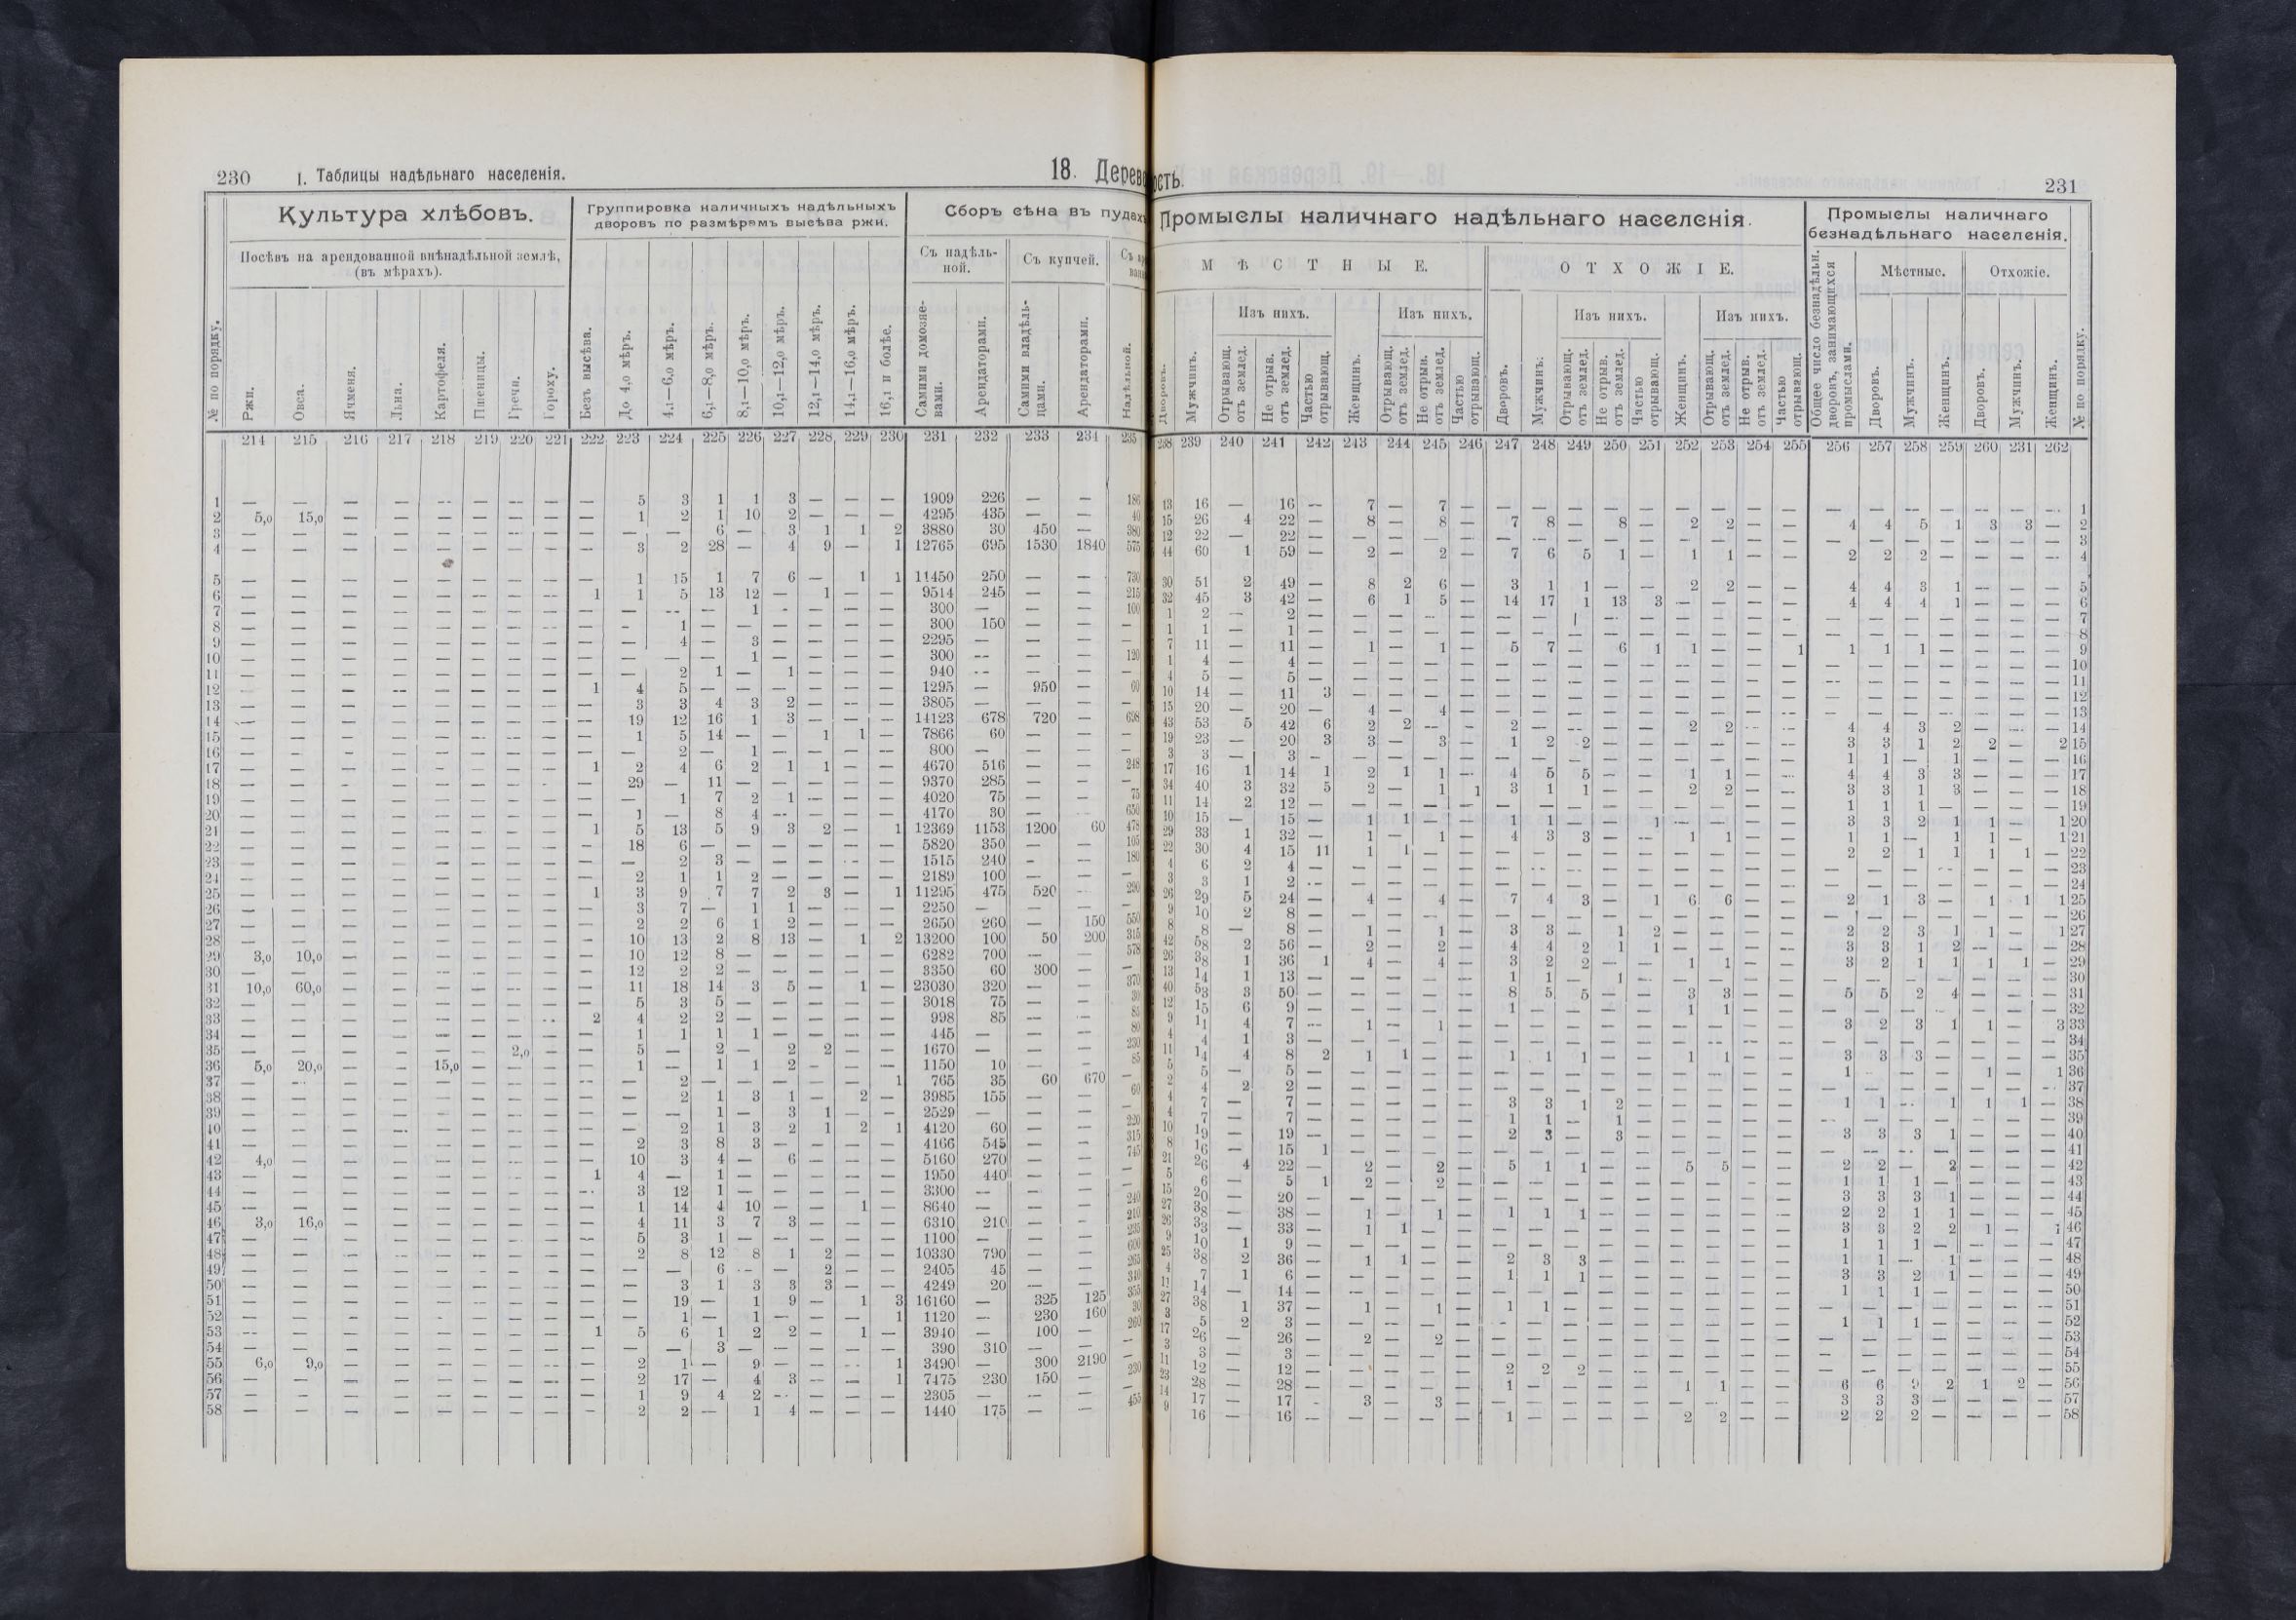 230
I. Таблицы надѣльнаго населенія.
18. Дерев
Культура хлѣбовъ.
Группировка наличныхъ надѣльныхъ
дворовъ по размѣрамъ высѣва ржи.
Сборъ сѣна въ пудахъ
Посѣвъ на арендованной внѣнадѣльной землѣ,
(въ мѣрахъ).
Съ надѣль-
ной.
Съ купчей.
№ по порядку.
Ржи.
Овса.
Ячменя.
Льна.
Картофеля.
Пшеницы.
Гречи.
Гороху.
Безъ высѣва.
До 4,0 мѣръ.
4,1—6,0 мѣръ.
6,1—8,0 мѣръ.
8,1—10,0 мѣръ.
10,1—12,0 мѣръ.
12,1—14,0 мѣръ.
14,1—16,0 мѣръ.
16,1 и болѣе.
Самими домохозяе-
вами.
Арендаторами.
Самими владѣль-
цами.
Арендаторами.
Надѣльной.
214 215 216 217 218 219 220 221 222 223 224 225 226 227 228 229 230 231 232 233 234 235
1 — — — — — — — — — 5 3 1 1 3 — — — 1909 226 — — 186
2 5,0 15,0 — — — — — — — 1 2 1 10 2 — — — 4295 435 — — 40
3 — — — — — — — — — — — 6 — 3 1 1 2 3880 30 450 — 380
4 — — — — — — — — — 3 2 28 — 4 9 — 1 12765 695 1530 1840 575
5 — — — — — — — — — 1 15 1 7 6 — 1 1 11450 250 — — 730
6 — — — — — — — — 1 1 5 13 12 — 1 — — 9514 245 — — 215
7 — — — — — — — — — — — — 1 — — — — 300 — — — 100
8 — — — — — — — — — — 1 — — — — — — 300 150 — — —
9 — — — — — — — — — — 4 — 3 — — — — 2295 — — — —
10 — — — — — — — — — — — — 1 — — — — 300 — — — 120
11 — — — — — — — — — — 2 1 — 1 — — — 940 — — — —
12 — — — — — — — — 1 4 5 — — — — — — 1295 — 950 — 60
13 — — — — — — — — — 3 3 4 3 2 — — — 3805 — — — —
14 — — — — — — — — — 19 12 16 1 3 — — — 14123 678 720 — 698
15 — — — — — — — — — 1 5 14 — — 1 1 — 7866 60 — — —
16 — — — — — — — — — — 2 — 1 — — — — 800 — — — —
17 — — — — — — — — 1 2 4 6 2 1 1 — — 4670 516 — — 248
18 — — — — — — — — — 29 — 11 — — — — — 9370 285 — — —
19 — — — — — — — — — — 1 7 2 1 — — — 4020 75 — — 75
20 — — — — — — — — — 1 — 8 4 — — — — 4170 30 — — 650
21 — — — — — — — — 1 5 13 5 9 3 2 — 1 12369 1153 1200 60 478
22 — — — — — — — — — 18 6 — — — — — — 5820 350 — — 105
23 — — — — — — — — — — 2 3 — — — — — 1515 240 — — 180
24 — — — — — — — — — 2 1 1 2 — — — — 2189 100 — — —
25 — — — — — — — — 1 3 9 7 7 2 3 — 1 11295 475 520 — 290
26 — — — — — — — — — 3 7 — 1 1 — — — 2250 — — — —
27 — — — — — — — — — 2 2 6 1 2 — — — 2650 260 — 150 550
28 — — — — — — — — — 10 13 2 8 13 — 1 2 13200 100 50 200 315
29 3,0 10,0 — — — — — — — 10 12 8 — — — — — 6282 700 — — 578
30 — — — — — — — — — 12 2 2 — — — — — 3350 60 300 — —
31 10,0 60,0 — — — — — — — 11 18 14 3 5 — 1 — 23030 320 — — 370
32 — — — — — — — — — 5 3 5 — — — — — 3018 75 — — 30
33 — — — — — — — — 2 4 2 2 — — — — — 998 85 — — 85
34 — — — — — — — — — 1 1 1 1 — — — — 445 — — — 80
35 — — — — — — 2,0 — — 5 — 2 — 2 2 — — 1670 — — — 230
36 5,0 20,0 — — 15,0 — — — — 1 — 1 1 2 — — — 1150 10 — — 85
37 — — — — — — — — — — 2 — — — — — 1 765 35 60 670 —
38 — — — — — — — — — — 2 1 3 1 — 2 — 3985 155 — — 60
39 — — — — — — — — — — — 1 — 3 1 — — 2529 — — — —
40 — — — — — — — — — — 2 1 3 2 1 2 1 4120 60 — — 220
41 — — — — — — — — — 2 3 8 3 — — — — 4166 545 — — 315
42 4,0 — — — — — — — — 10 3 4 — 6 — — — 5160 270 — — 745
43 — — — — — — — — 1 4 — 1 — — — — — 1950 440 — — —
44 — — — — — — — — — 3 12 1 — — — — — 3300 — — — —
45 — — — — — — — — — 1 14 4 10 — — 1 — 8640 — — — 240
46 3,0 16,0 — — — — — — — 4 11 3 7 3 — — — 6310 210 — — 210
47 — — — — — — — — — 5 3 1 — — — — — 1100 — — — 235
48 — — — — — — — — — 2 8 12 8 1 2 — — 10330 790 — — 600
49 — — — — — — — — — — — 6 — — 2 — — 2405 45 — — 265
50 — — — — — — — — — — 3 1 3 3 3 — — 4249 20 — — 340
51 — — — — — — — — — — 19 — 1 9 — 1 3 16160 — 325 125 355
52 — — — — — — — — — — 1 — 1 — — — 1 1120 — 230 160 30
53 — — — — — — — — 1 5 6 1 2 2 — 1 — 3940 — 100 — 260
54 — — — — — — — — — — — 3 — — — — — 390 310 — — —
55 6,0 9,0 — — — — — — — 2 1 — 9 — — — 1 3490 — 300 2190 —
56 — — — — — — — — — 2 17 — 4 3 — — 1 7475 230 150 — 230
57 — — — — — — — — — 1 9 4 2 — — — — 2305 — — — —
58 — — — — — — — — — 2 2 — 1 4 — — — 1440 175 — — 455
ость.
231
Промыслы наличнаго надѣльнаго населенія.
Промыслы наличнаго
безнадѣльнаго населенія.
МѢСТНЫЕ.
ОТХОЖІЕ.
Мѣстные.
Отхожіе.
Изъ нихъ.
Изъ нихъ.
Изъ нихъ.
Изъ нихъ.
Дворовъ.
Мужчинъ.
Отрывающ. отъ землед.
Не отрыв. отъ землед.
Частью отрывающ.
Женщинъ.
Отрывающ. отъ землед.
Не отрыв. отъ землед.
Частью отрывающ.
Дворовъ.
Мужчинъ.
Отрывающ. отъ землед.
Не отрыв. отъ землед.
Частью отрывающ.
Женщинъ.
Отрывающ. отъ землед.
Не отрыв. отъ землед.
Частью отрывающ.
Общее число безнадѣльн. дворовъ, занимающихся промыслами.
Дворовъ.
Мужчинъ.
Женщинъ.
Дворовъ.
Мужчинъ.
Женщинъ.
№ по порядку.
238 239 240 241 242 243 244 245 246 247 248 249 250 251 252 253 254 255 256 257 258 259 260 231 262
13 16 — 16 — 7 — 7 — — — — — — — — — — — — — — — — — 1
15 26 4 22 — 8 — 8 — 7 8 — 8 — 2 2 — — 4 4 5 1 3 3 — 2
12 22 — 22 — — — — — — — — — — — — — — — — — — — — — 3
44 60 1 59 — 2 — 2 — 7 6 5 1 — 1 1 — — 2 2 2 — — — — 4
30 51 2 49 — 8 2 6 — 3 1 1 — — 2 2 — — 4 4 3 1 — — — 5
32 45 3 42 — 6 1 5 — 14 17 1 13 3 — — — — 4 4 4 1 — — — 6
1 2 — 2 — — — — — — — — — — — — — — — — — — — — — 7
1 1 — 1 — — — — — — — — — — — — — — — — — — — — — 8
7 11 — 11 — 1 — 1 — 5 7 — 6 1 1 — — 1 1 1 1 — — — — 9
1 4 — 4 — — — — — — — — — — — — — — — — — — — — — 10
4 5 — 5 — — — — — — — — — — — — — — — — — — — — — 11
10 14 — 11 3 — — — — — — — — — — — — — — — — — — — — 12
15 20 — 20 — 4 — 4 — — — — — — — — — — — — — — — — — 13
43 53 5 42 6 2 2 — — 2 — — — — 2 2 — — 4 4 3 2 — — — 14
19 23 — 20 3 3 — 3 — 1 2 2 — — — — — — 3 3 1 2 2 — 2 15
3 3 — 3 — — — — — — — — — — — — — — 1 1 — 1 — — — 16
17 16 1 14 1 2 1 1 — 4 5 5 — — 1 1 — — 4 4 3 3 — — — 17
34 40 3 32 5 2 — 1 1 3 1 1 — — 2 2 — — 3 3 1 3 — — — 18
11 14 2 12 — — — — — — — — — — — — — — 1 1 1 — — — — 19
10 15 — 15 — 1 1 — — 1 1 — — 1 — — — — 3 3 2 1 1 — 1 20
29 33 1 32 — 1 — 1 — 4 3 3 — — 1 1 — — 1 1 — 1 1 — 1 21
22 30 4 15 11 1 1 — — — — — — — — — — — 2 2 1 1 1 1 — 22
4 6 2 4 — — — — — — — — — — — — — — — — — — — — — 23
3 3 1 2 — — — — — — — — — — — — — — — — — — — — — 24
26 29 5 24 — 4 — 4 — 7 4 3 — 1 6 6 — — 2 1 3 — 1 1 1 25
9 10 2 8 — — — — — — — — — — — — — — — — — — — — — 26
8 8 — 8 — 1 — 1 — 3 3 — 1 2 — — — — 2 2 3 1 1 — 1 27
42 58 2 56 — 2 — 2 — 4 4 2 1 1 — — — — 3 3 1 2 — — — 28
26 38 1 36 1 4 — 4 — 3 2 2 — — 1 1 — — 3 2 1 1 1 1 — 29
13 14 1 13 — — — — — 1 1 — 1 — — — — — — — — — — — — 30
40 53 3 50 — — — — — 8 5 5 — — 3 3 — — 5 5 2 4 — — — 31
12 15 6 9 — — — — — 1 — — — — 1 1 — — — — — — — — — 32
9 11 4 7 — 1 — 1 — — — — — — — — — — 3 2 3 1 1 — 3 33
4 4 1 3 — — — — — — — — — — — — — — — — — — — — — 34
11 14 4 8 2 1 1 — — 1 1 1 — — 1 1 — — 3 3 3 — — — — 35
5 5 — 5 — — — — — — — — — — — — — — 1 — — — 1 — 1 36
2 4 2 2 — — — — — — — — — — — — — — — — — — — — — 37
4 7 — 7 — — — — — 3 3 1 2 — — — — — 1 1 — 1 1 1 — 38
4 7 — 7 — — — — — 1 1 — 1 — — — — — — — — — — — — 39
10 19 — 19 — — — — — 2 3 — 3 — — — — — 3 3 3 1 — — — 40
8 16 — 15 1 — — — — — — — — — — — — — — — — — — — — 41
21 26 4 22 — 2 — 2 — 5 1 1 — — 5 5 — — 2 2 — 2 — — — 42
5 6 — 5 1 2 — 2 — — — — — — — — — — 1 1 1 — — — — 43
15 20 — 20 — — — — — — — — — — — — — — 3 3 3 1 — — — 44
27 38 — 38 — 1 — 1 — 1 1 1 — — — — — — 2 2 1 1 — — — 45
26 33 — 33 — 1 1 — — — — — — — — — — — 3 3 2 2 1 — 1 46
9 10 1 9 — — — — — — — — — — — — — — 1 1 1 — — — — 47
25 38 2 36 — 1 1 — — 2 3 3 — — — — — — 1 1 — 1 — — — 48
4 7 1 6 — — — — — 1 1 1 — — — — — — 3 3 2 1 — — — 49
11 14 — 14 — — — — — — — — — — — — — — 1 1 1 — — — — 50
27 38 1 37 — 1 — 1 — 1 1 — — — — — — — — — — — — — — 51
3 5 2 3 — — — — — — — — — — — — — — 1 1 1 — — — — 52
17 26 — 26 — 2 — 2 — — — — — — — — — — — — — — — — — 53
3 3 — 3 — — — — — — — — — — — — — — — — — — — — — 54
11 12 — 12 — — — — — 2 2 2 — — — — — — — — — — — — — 55
23 28 — 28 — — — — — 1 — — — — 1 1 — — 6 6 9 2 1 2 — 56
14 17 — 17 — 3 — 3 — — — — — — — — — — 3 3 3 — — — — 57
9 16 — 16 — — — — — 1 — — — — 2 2 — — 2 2 2 — — — — 58